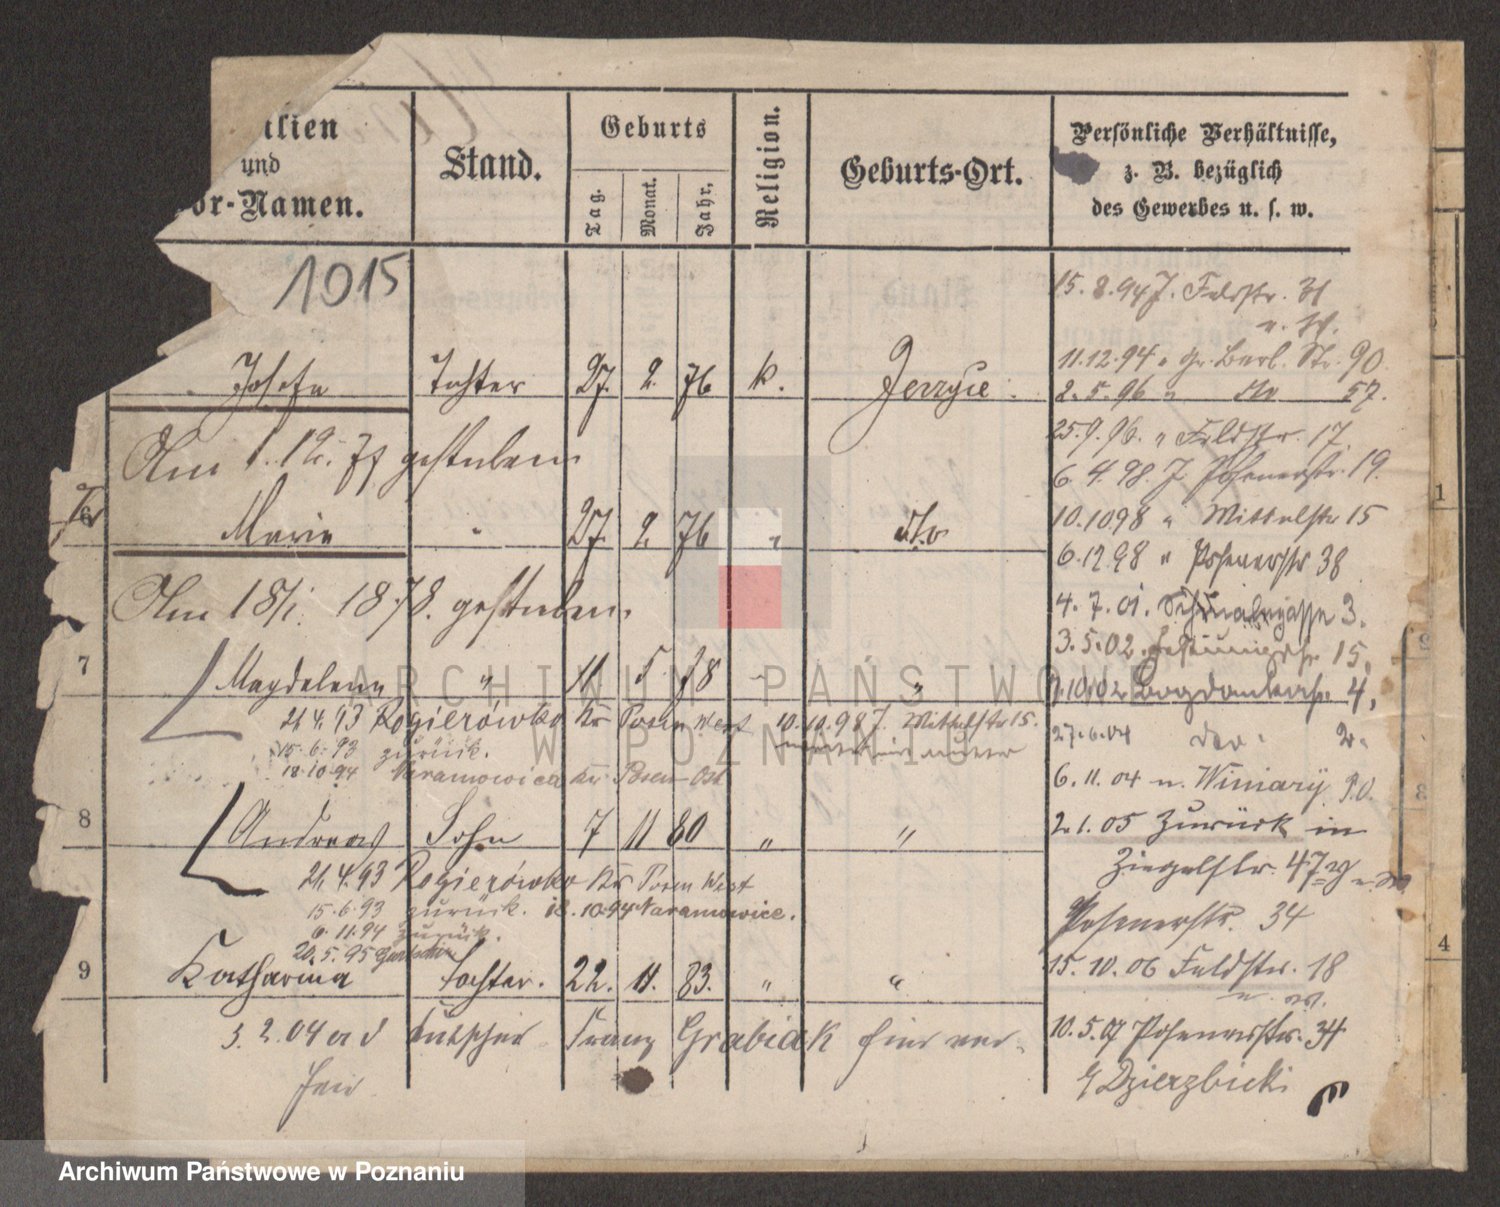 ilien
und
or-Namen.
Stand.
Geburts
Tag.
Monat.
Jahr.
Religion.
Geburts-Ort.
Persönliche Verhältnisse,
z. B. bezüglich
des Gewerbes u. s. w.
1015
15.8.94 J. Feldstr. 31
11.12.94 " gr. Berl. Str. 90
Josefa Tochter 27. 2. 76 k. Jerzyce
2.5.96 " do 57.
25.9.96. " Feldstr. 17
Am 1.12. 77 gestorben
6.4.98. J. Posenerstr. 19.
6
Marie " 27. 2. 76 " dto
10.10 98 " Mittelstr 15
6.12 98 " Posenerstr 38
Am 18/1. 1878. gestorben.
4.7.01. 3.
3.5.02. 15.
7 Magdalena " 11 5. 78 " "
7.10.02 Bogdankastr. 4,
21.4.93 Rogierówko Kr Posen West
10.10.98 J. Mittelstr 15.
15.6.93 zurück.
27.6.04 2.
18.10.94 Naramowice Kr Posen-Ost
6.11.04 n. Winiary P.O.
8 Andreas Sohn 7 11 80 " "
2.1.05 zurück in
Ziegelstr. 47
21.4.93 Rogierówko Kr Posen West
15.6.93 zurück. 18.10.94 Naramowice.
6.11.94 zurück.
Posenerstr. 34
20.5.95
9 Katharina Tochter. 22. 11. 83. " "
15.10.06 Feldstr. 18
3.2.04 a d Kutscher Franz Grabiak hier ver-
10.5.07 Posenerstr. 34
heir
Dzierzbicki
1
2
8
4
ARCHIWUM PAŃSTWOWE
W POZNANIU
Archiwum Państwowe w Poznaniu